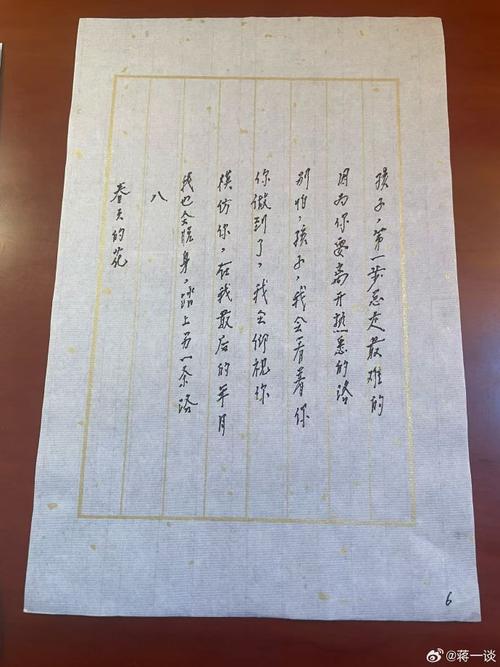 孩子，第一步总是最难的
因为你要离开熟悉的路
别怕，孩子，我会看着你
你做到了，我会仰视你
模仿你，在我最后的年月
我也会脱身，踏上另一条路
八
春天的花
6
@蒋一谈